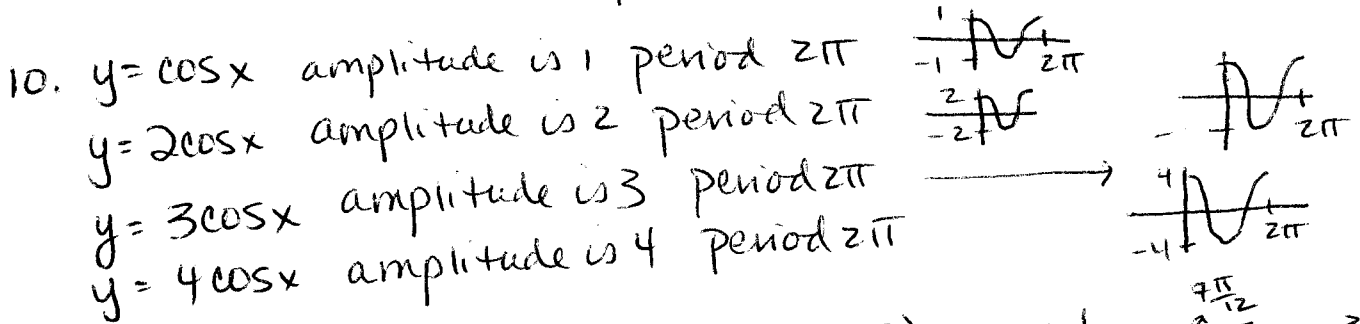 10. y = cos x amplitude is 1 period 2π 1 -1 2π
y = 2cos x amplitude is 2 period 2π 2 -2 2π
y = 3cos x amplitude is 3 period 2π → 4 -4 2π
y = 4cos x amplitude is 4 period 2π
7π/12